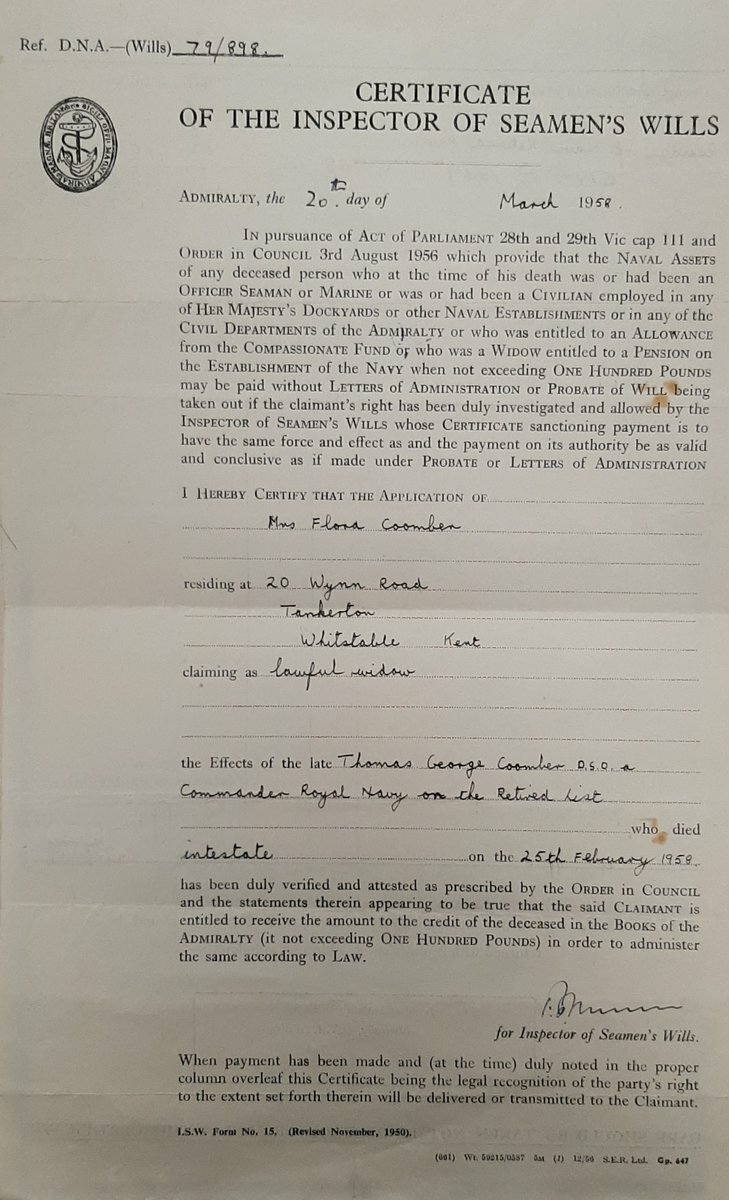 Ref. D.N.A.—(Wills) 79/898.
CERTIFICATE
OF THE INSPECTOR OF SEAMEN'S WILLS
ADMIRALTY, the 20th. day of March 1958.
IN pursuance of ACT OF PARLIAMENT 28th and 29th Vic cap 111 and
ORDER IN COUNCIL 3rd August 1956 which provide that the NAVAL ASSETS
of any deceased person who at the time of his death was or had been an
OFFICER SEAMAN OR MARINE or was or had been a CIVILIAN employed in any
of HER MAJESTY'S DOCKYARDS or other NAVAL ESTABLISHMENTS or in any of the
CIVIL DEPARTMENTS of the ADMIRALTY or who was entitled to an ALLOWANCE
from the COMPASSIONATE FUND or who was a WIDOW entitled to a PENSION on
the ESTABLISHMENT of the NAVY when not exceeding ONE HUNDRED POUNDS
may be paid without LETTERS OF ADMINISTRATION or PROBATE of WILL being
taken out if the claimant's right has been duly investigated and allowed by the
INSPECTOR OF SEAMEN'S WILLS whose CERTIFICATE sanctioning payment is to
have the same force and effect as and the payment on its authority be as valid
and conclusive as if made under PROBATE or LETTERS OF ADMINISTRATION
I HEREBY CERTIFY THAT THE APPLICATION OF
Mrs Flora Coomber
residing at 20 Wynn Road
Tankerton
Whitstable Kent
claiming as lawful widow
the Effects of the late Thomas George Coomber D.S.O. a
Commander Royal Navy on the Retired List
who died
intestate on the 25th February 1958
has been duly verified and attested as prescribed by the ORDER IN COUNCIL
and the statements therein appearing to be true that the said CLAIMANT is
entitled to receive the amount to the credit of the deceased in the BOOKS of the
ADMIRALTY (it not exceeding ONE HUNDRED POUNDS) in order to administer
the same according to LAW.
for Inspector of Seamen's Wills.
When payment has been made and (at the time) duly noted in the proper
column overleaf this Certificate being the legal recognition of the party's right
to the extent set forth therein will be delivered or transmitted to the Claimant.
I.S.W. Form No. 15. (Revised November, 1950).
(661) Wt. 59215/0587 5M (1) 12/56 S.E.R. Ltd. Gp. 647